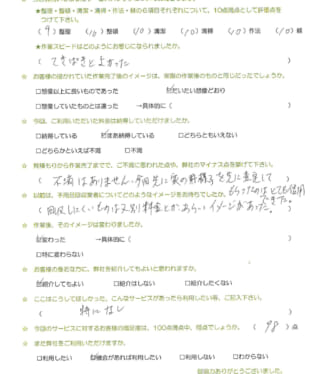 ★整理・整頓・清潔・清掃・作法・躾の６項目それぞれについて、10点満点として評価点を
つけて下さい。
( 9 )整理 ( 10 )整頓 ( 10 )清潔 ( 10 )清掃 ( 10 )作法 ( 10 )躾
★作業スピードはどのようにお感じになられましたか。
( てきぱきとよかった )
☆ お客様の描かれていた作業完了後のイメージは、実際の作業後のものと同じだったでしょうか。
□想像以上に良いものであった ☑だいたい想像どおり
□想像していたものとは違った →具体的に( )
☆ 今回、ご利用いただいた料金は納得していただけましたか。
□納得している ☑まあ納得している □どちらともいえない
□どちらかといえば不満 □不満
☆ 見積もりから作業完了までで、ご不満に思われた点や、弊社のマイナス点を挙げて下さい。
( 不満はありません。今回先に実の 先に査定して )
もらったのはとても信用できた。
☆ 以前は、不用品回収業者についてどのようなイメージをお持ちでしたか。
( 回収しにくいものは又別料金とか、あらいイメージがあった。 )
☆ 作業後、そのイメージは変わりましたか。
☑変わった →具体的に( )
□特に変わらない
☆ お客様の身近な方に、弊社を紹介してもよいと思われますか。
☑紹介してもよい □紹介はしない □紹介したくない
☆ ここはこうしてほしかった、こんなサービスがあったら利用したい等、ご記入下さい。
( 特になし )
☆ 今回のサービスに対するお客様の満足度は、100点満点中、何点でしょうか。 ( 98 )点
☆ また弊社をご利用いただけますか。
□利用したい ☑機会があれば利用したい □利用しない □わからない
ご協力ありがとうございました。